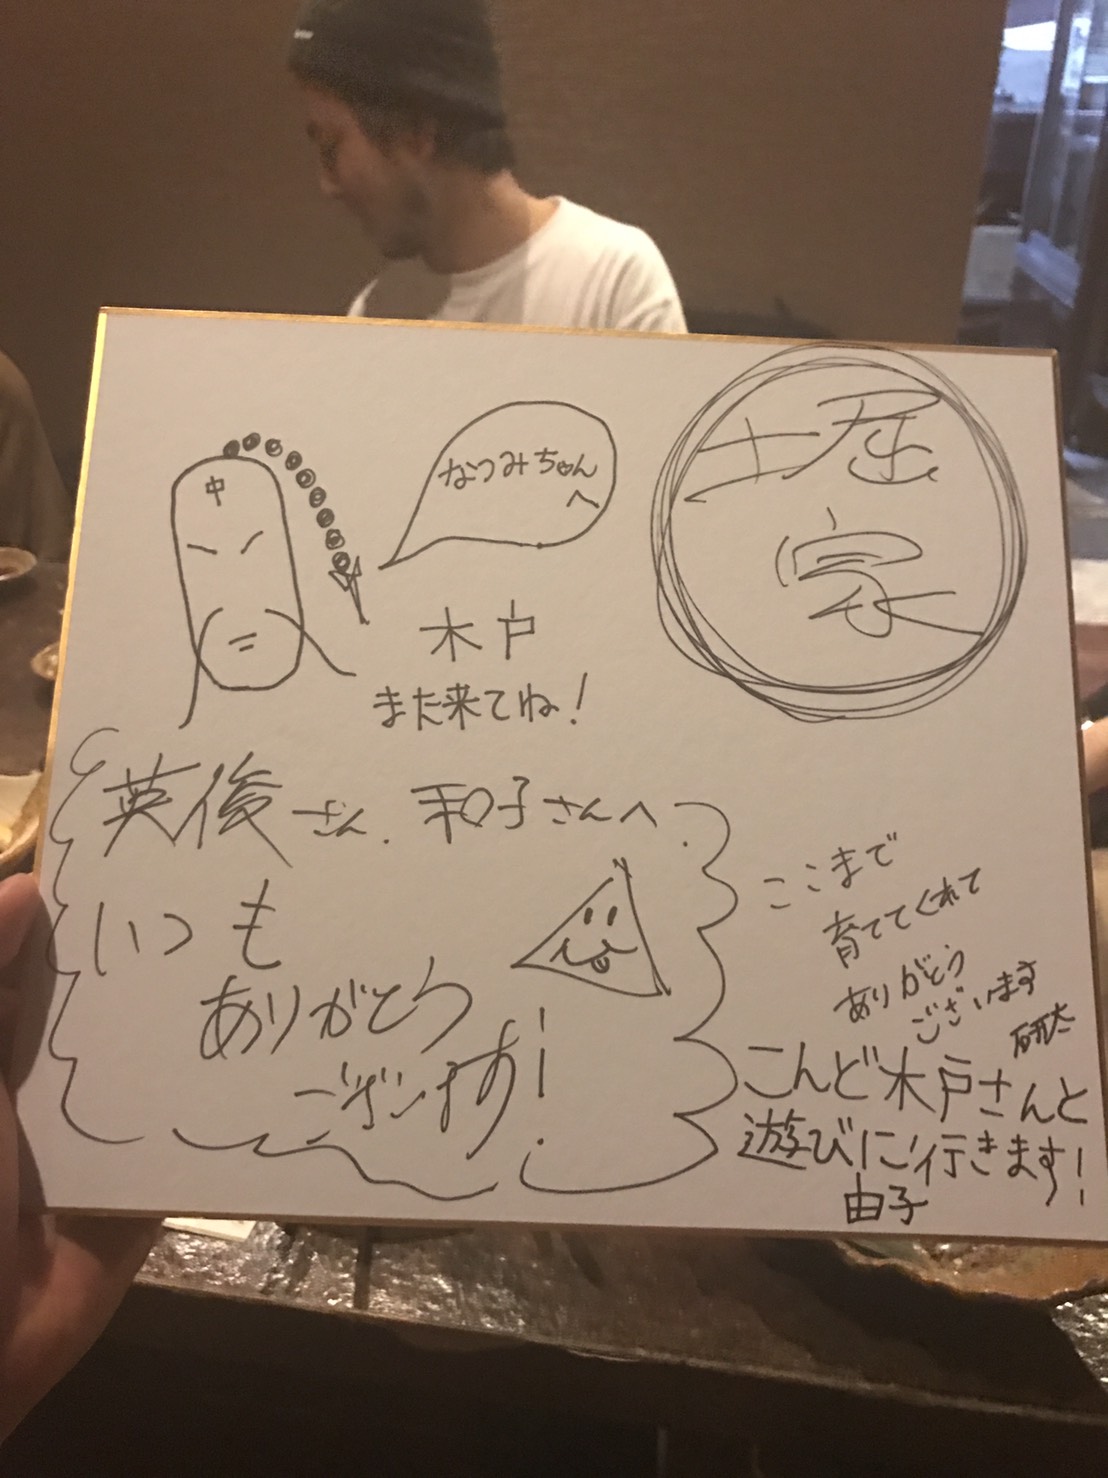 中
なつみちゃん
へ
木戸
また来てね!
堀
家
英俊さん、和子さんへ
いつも
ありがとう
ございます!
ここまで
育ててくれて
ありがとう
ございます
研太
こんど木戸さんと
遊びに行きます!
由子